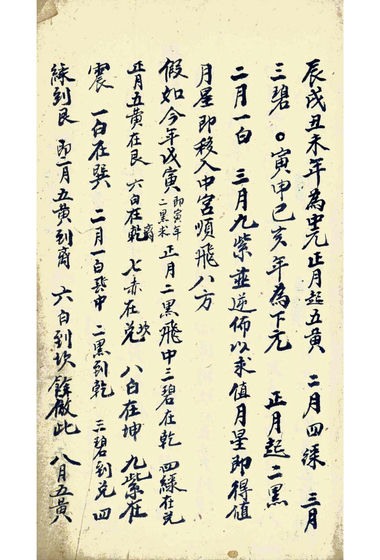 辰戌丑未年為中元 正月起五黃 二月四綠 三月
三碧 ○寅申巳亥年為下元 正月起二黑
二月一白 三月九紫並逆佈以求值月星即得值
月星即移入中宮順飛八方
假如今年戊寅 即寅年二黑求 正月二黑飛中三碧在乾 四綠在兌
正月五黃在艮 六白在乾离 七赤在兌坎 八白在坤 九紫在
震 一白在巽 二月一白飛中 二黑到乾 三碧到兌 四
綠到艮 即二月五黃到离 六白到坎 餘倣此 八月五黃